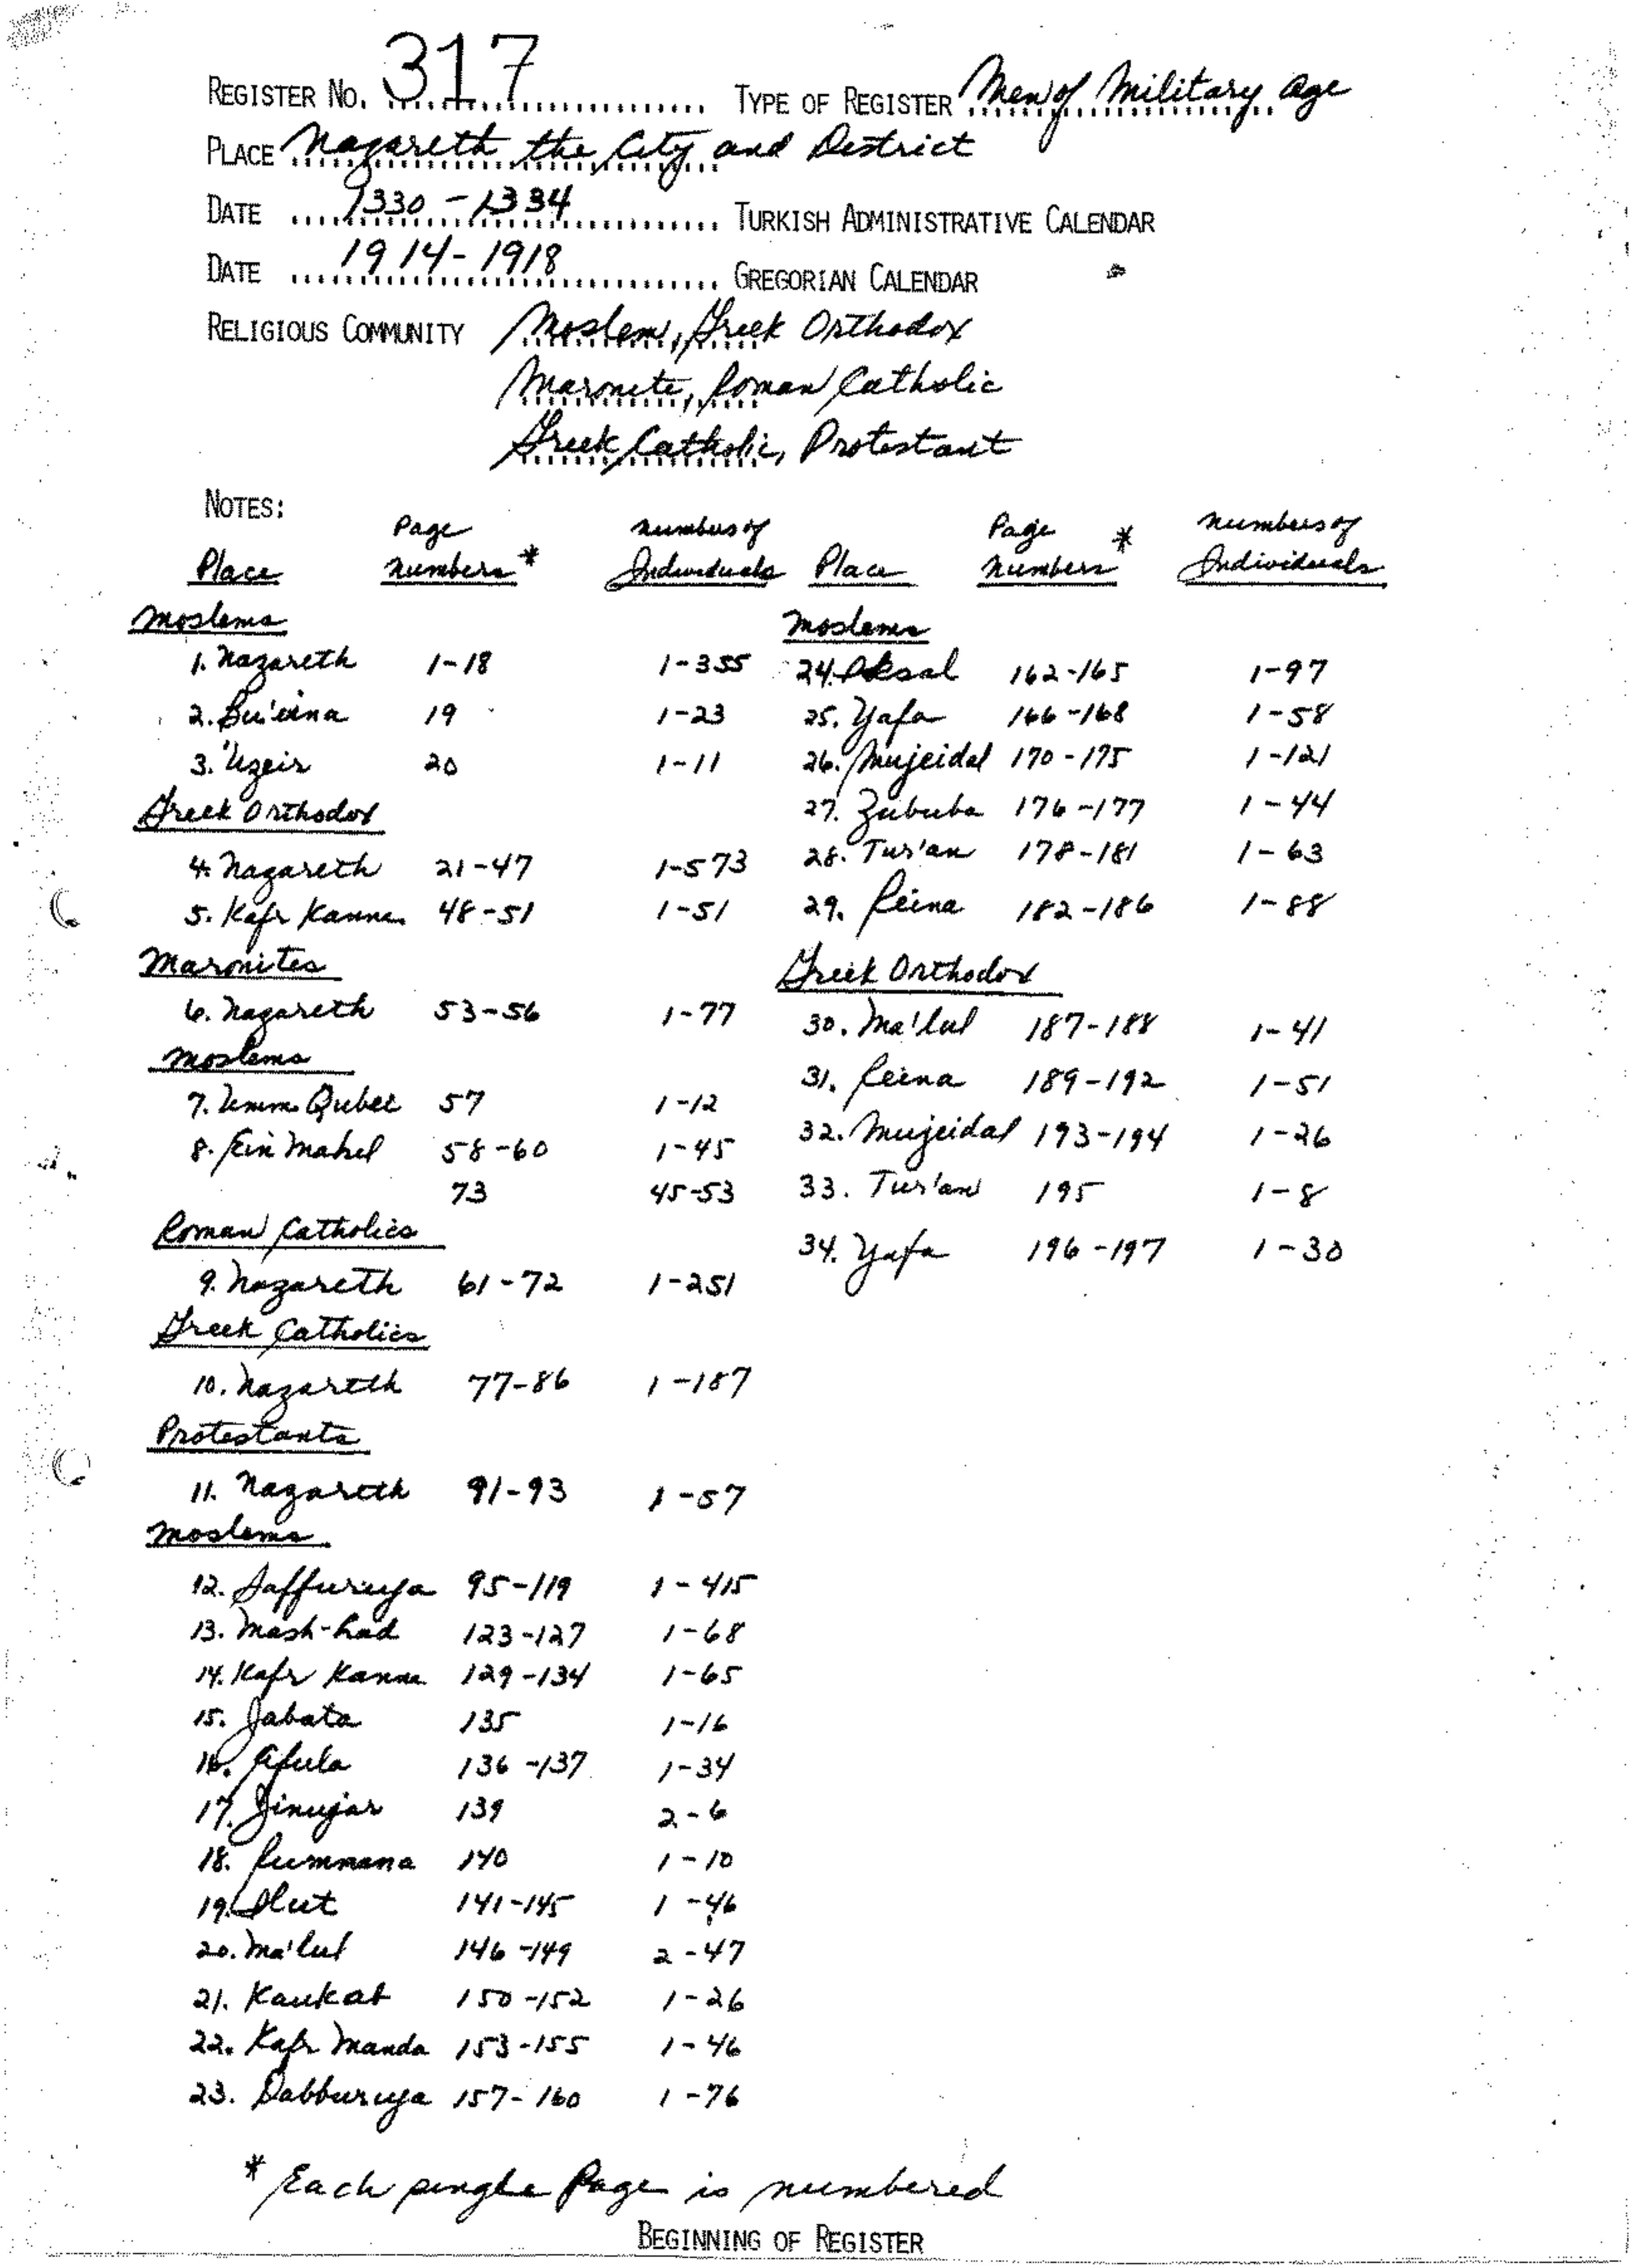 REGISTER NO. 317 TYPE OF REGISTER Men of Military Age
PLACE Nazareth the City and District
DATE 1330-1334 TURKISH ADMINISTRATIVE CALENDAR
DATE 1914-1918 GREGORIAN CALENDAR
RELIGIOUS COMMUNITY Moslem, Greek Orthodox
Maronite, Roman Catholic
Greek Catholic, Protestant
NOTES:
Place Page Numbers * Numbers of Individuals
Moslems
1. Nazareth 1-18 1-355
2. Bu'eina 19 1-23
3. 'Uzeir 20 1-11
Greek Orthodox
4. Nazareth 21-47 1-573
5. Kafr Kanna 48-51 1-51
Maronites
6. Nazareth 53-56 1-77
Moslems
7. Umm Qubei 57 1-12
8. Ein Mahel 58-60 1-45
73 45-53
Roman Catholics
9. Nazareth 61-72 1-251
Greek Catholics
10. Nazareth 77-86 1-187
Protestants
11. Nazareth 91-93 1-57
Moslems
12. Saffuruya 95-119 1-415
13. Mash-had 123-127 1-68
14. Kafr Kanna 129-134 1-65
15. Jabata 135 1-16
16. Afula 136-137 1-34
17. Jinujar 139 2-6
18. Rummana 140 1-10
19. Ilut 141-145 1-46
20. Ma'lul 146-149 2-47
21. Kaukab 150-152 1-26
22. Kafr Manda 153-155 1-46
23. Dabburuya 157-160 1-76
Place Page Numbers * Numbers of Individuals
Moslems
24. Iksal 162-165 1-97
25. Yafa 166-168 1-58
26. Mujeidal 170-175 1-121
27. Zububa 176-177 1-44
28. Tur'an 178-181 1-63
29. Reina 182-186 1-88
Greek Orthodox
30. Ma'lul 187-188 1-41
31. Reina 189-192 1-51
32. Mujeidal 193-194 1-26
33. Tur'an 195 1-8
34. Yafa 196-197 1-30
* Each single Page is numbered
BEGINNING OF REGISTER